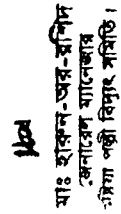 মোঃ হারুন-অর-রশিদ
জেনারেল ম্যানেজার
পল্লী বিদ্যুৎ সমিতি।